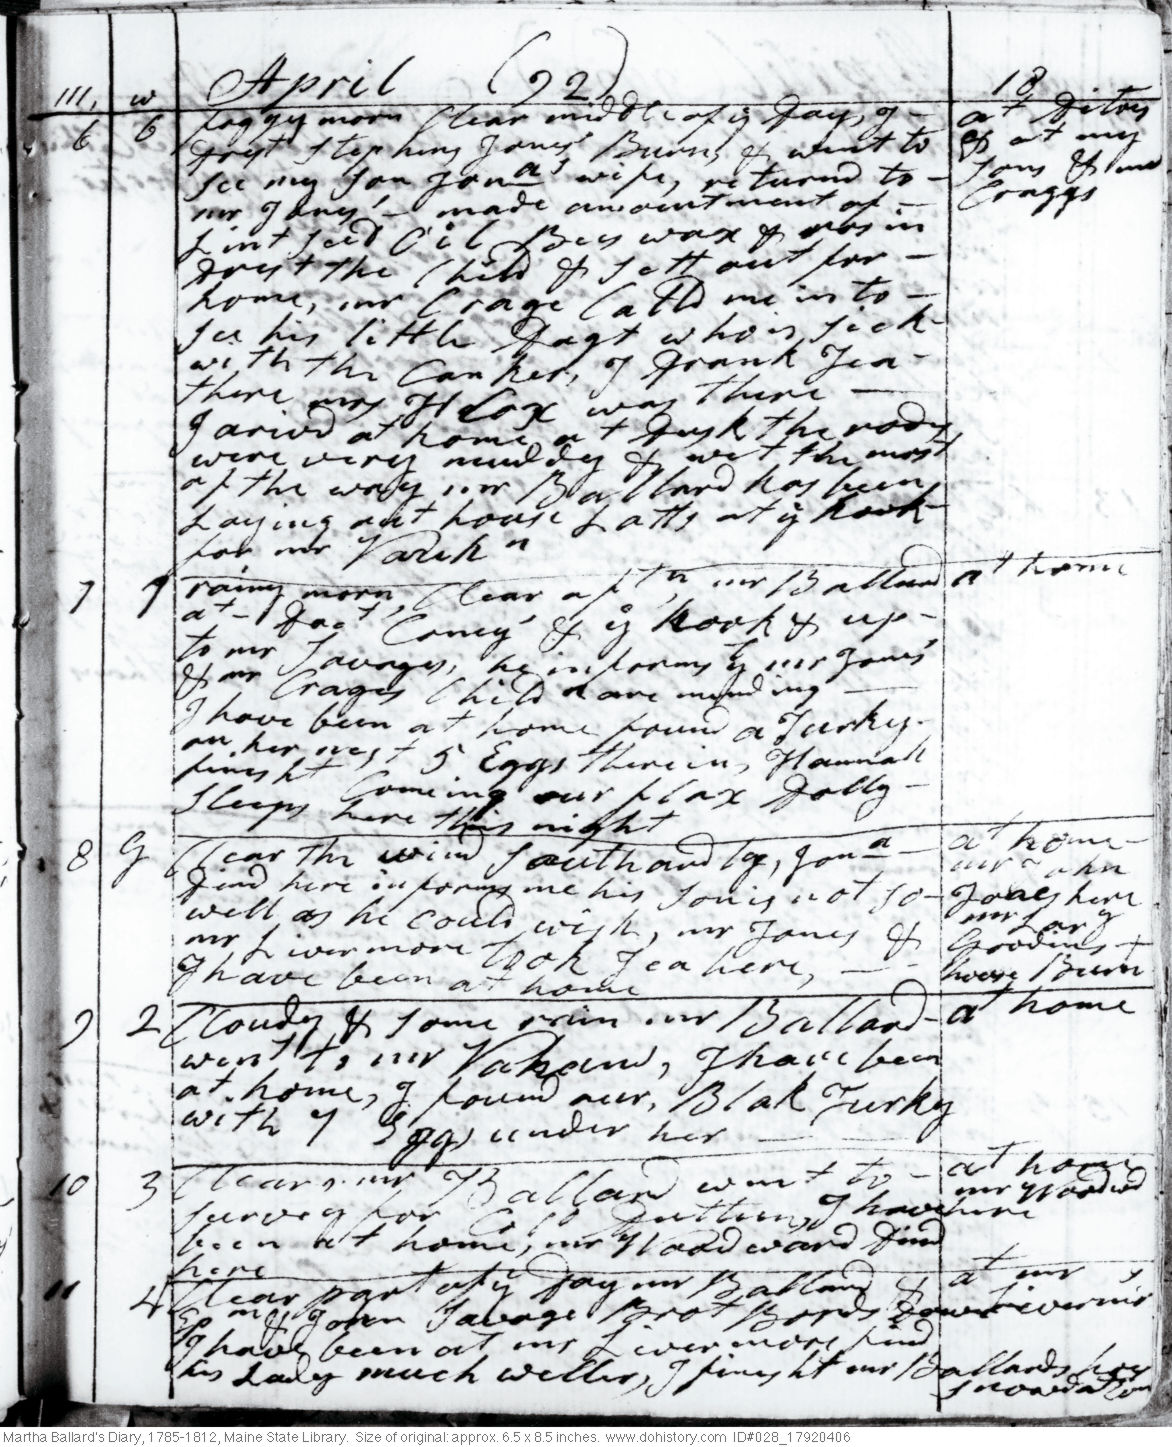 April (92) 18
m, w
6 6 foggy morn Clear middle of ye Day, I - at Ditoes
Drest Stephen Jones' Burns & went to & at my
see my son Jonas wife, returnd to - sons & mr
mr Jones' - made an ointment of - Craggs
Lintseed Oil Bees wax & rosin
Drest the Child & sett out for -
home, mr Crage Calld me in to -
see his little Dagt who is sick
with the Canker, I Drank Tea -
there mrs H Cox was there -
I arivd at home at Dusk the rods
were very muddy & wet the most
of the way mr Ballard has been
Laying out house Lotts at ye hook
for mr Varsh n
7 7 rainy morn, Clear aftn, mr Ballard at home
at - Doct Conys' & ye hook & up -
to mr Savages, he informs yt mr Jones'
& mr Crages Child are mending -
I have been at home found a Turkey
on her nest 5 Eggs therein, Hannah
finisht Comeing our flax Dolly -
sleeps here this night
8 G Clear the wind Southardly, Jona - at home
Dind here informs me his son is not so - mr John
well as he could wish, mr Jones & Jones here
mr Livermore took Tea here, - mr
I have been at home house Burnt
9 2 Cloudy & some rain mr Ballard - at home
went to mr Vahan, I have been
at home, I found our, Blak Turky
with 7 Eggs under her -
10 3 Clear, mr Ballard went to - at home
survey for Coll Dutton, I have mr Woodwd
been at home, mr Woodward Dind here
here
11 4 Clear part of ye Day mr Ballard & at mr
Ephm & John Savage Brot Bords Down Livermrs
I have been at mr Livermore find
his Lady much weller, I finisht mr Ballards hoes
Martha Ballard's Diary, 1785-1812, Maine State Library. Size of original: approx. 6.5 x 8.5 inches. www.dohistory.com ID#028_17920406